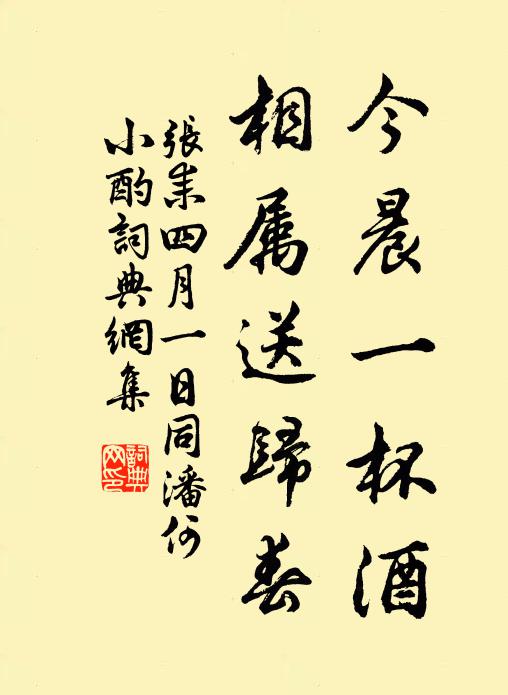 今晨一杯酒
相属送歸春
張耒四月一日同潘何
小酌詞典網集
詞典
网印